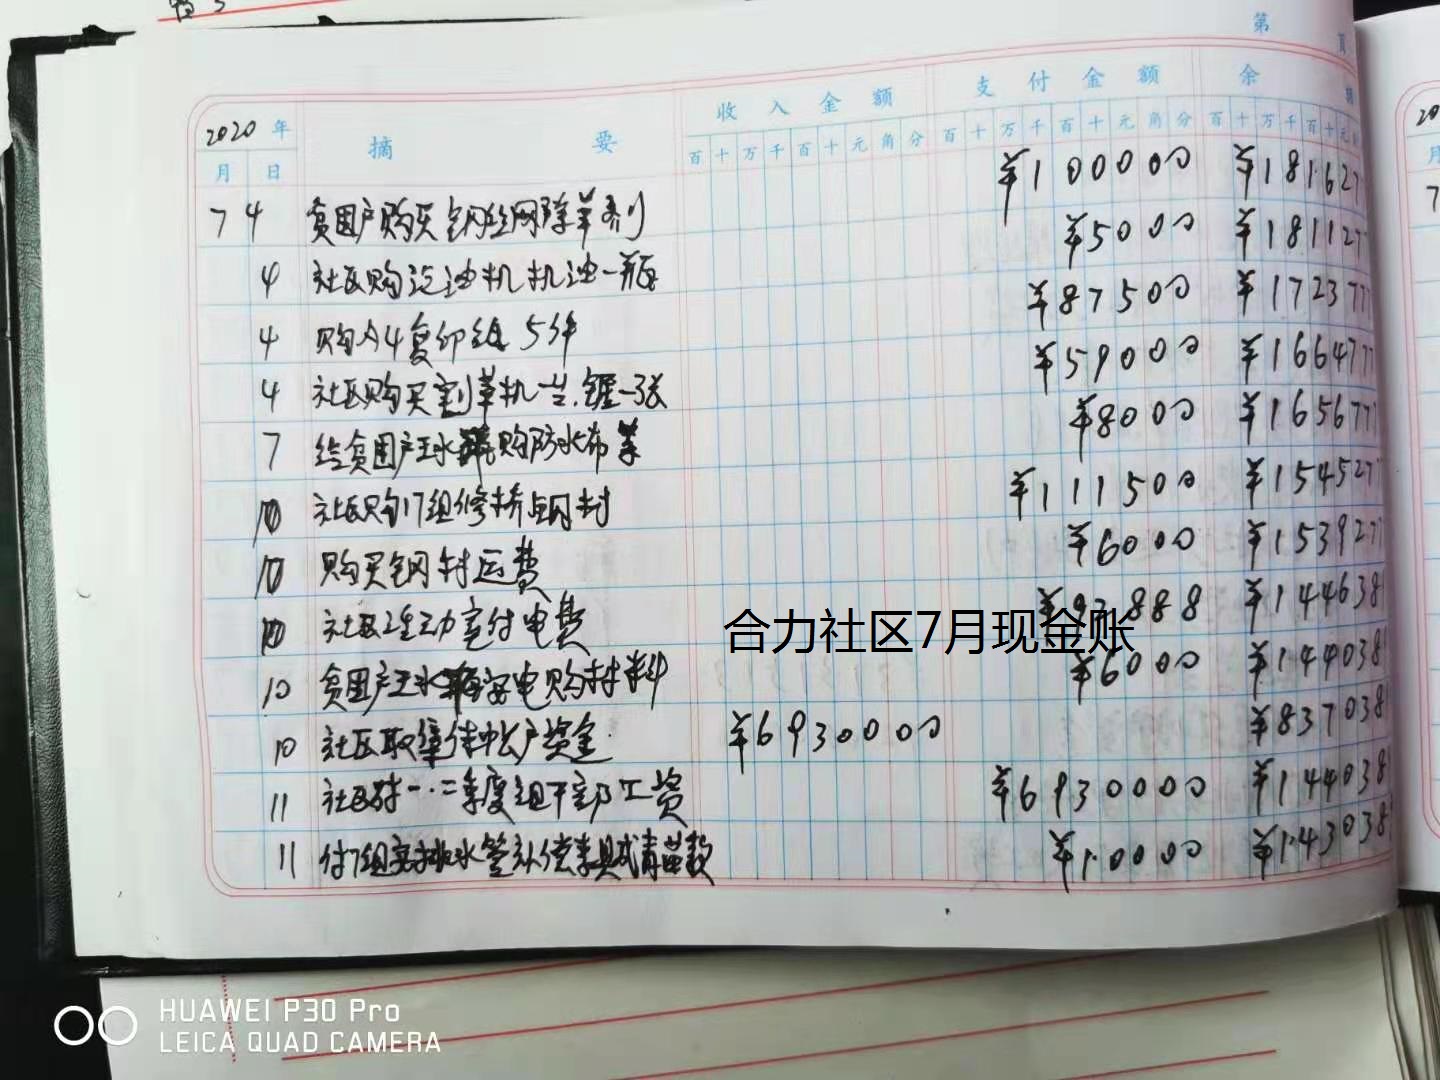 第 页
2020年 摘要 收入金额 支付金额 余额
月 日 百十万千百十元角分 百十万千百十元角分 百十万千百十元
7 4 贫困户购买钢丝网除草剂 ¥100000 ¥181627
4 社区购汽油机机油一瓶 ¥5000 ¥181127
4 购A4复印纸5件 ¥87500 ¥172377
4 社区购买割草机一台.锯一张 ¥59000 ¥166477
7 给贫困户王水 购防水布等 ¥8000 ¥165677
10 社区购17组修桥 ¥111500 ¥154527
10 购买钢材运费 ¥6000 ¥153927
10 社区 支付电费 888 ¥144638
10 贫困户王水 安电购材料 ¥6000 ¥144038
10 社区取 资金 ¥6930000 ¥837038
11 社区 一.二季度组干部工资 ¥6930000 ¥144038
11 付7组 排水 补偿 青苗款 ¥10000 ¥143038
合力社区7月现金账
HUAWEI P30 Pro
LEICA QUAD CAMERA